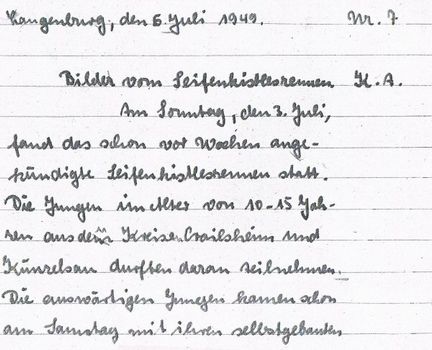 Langenburg, den 5. Juli 1949. Nr. 7
Bilder vom Seifenkistlesrennen K. A.
Am Sonntag, den 3. Juli,
fand das schon vor Wochen ange-
kündigte Seifenkistlesrennen statt.
Die Jungen im Alter von 10-15 Jah-
ren aus den Kreisen Crailsheim und
Künzelsau durften daran teilnehmen.
Die auswärtigen Jungen kamen schon
am Samstag mit ihren selbstgebauten